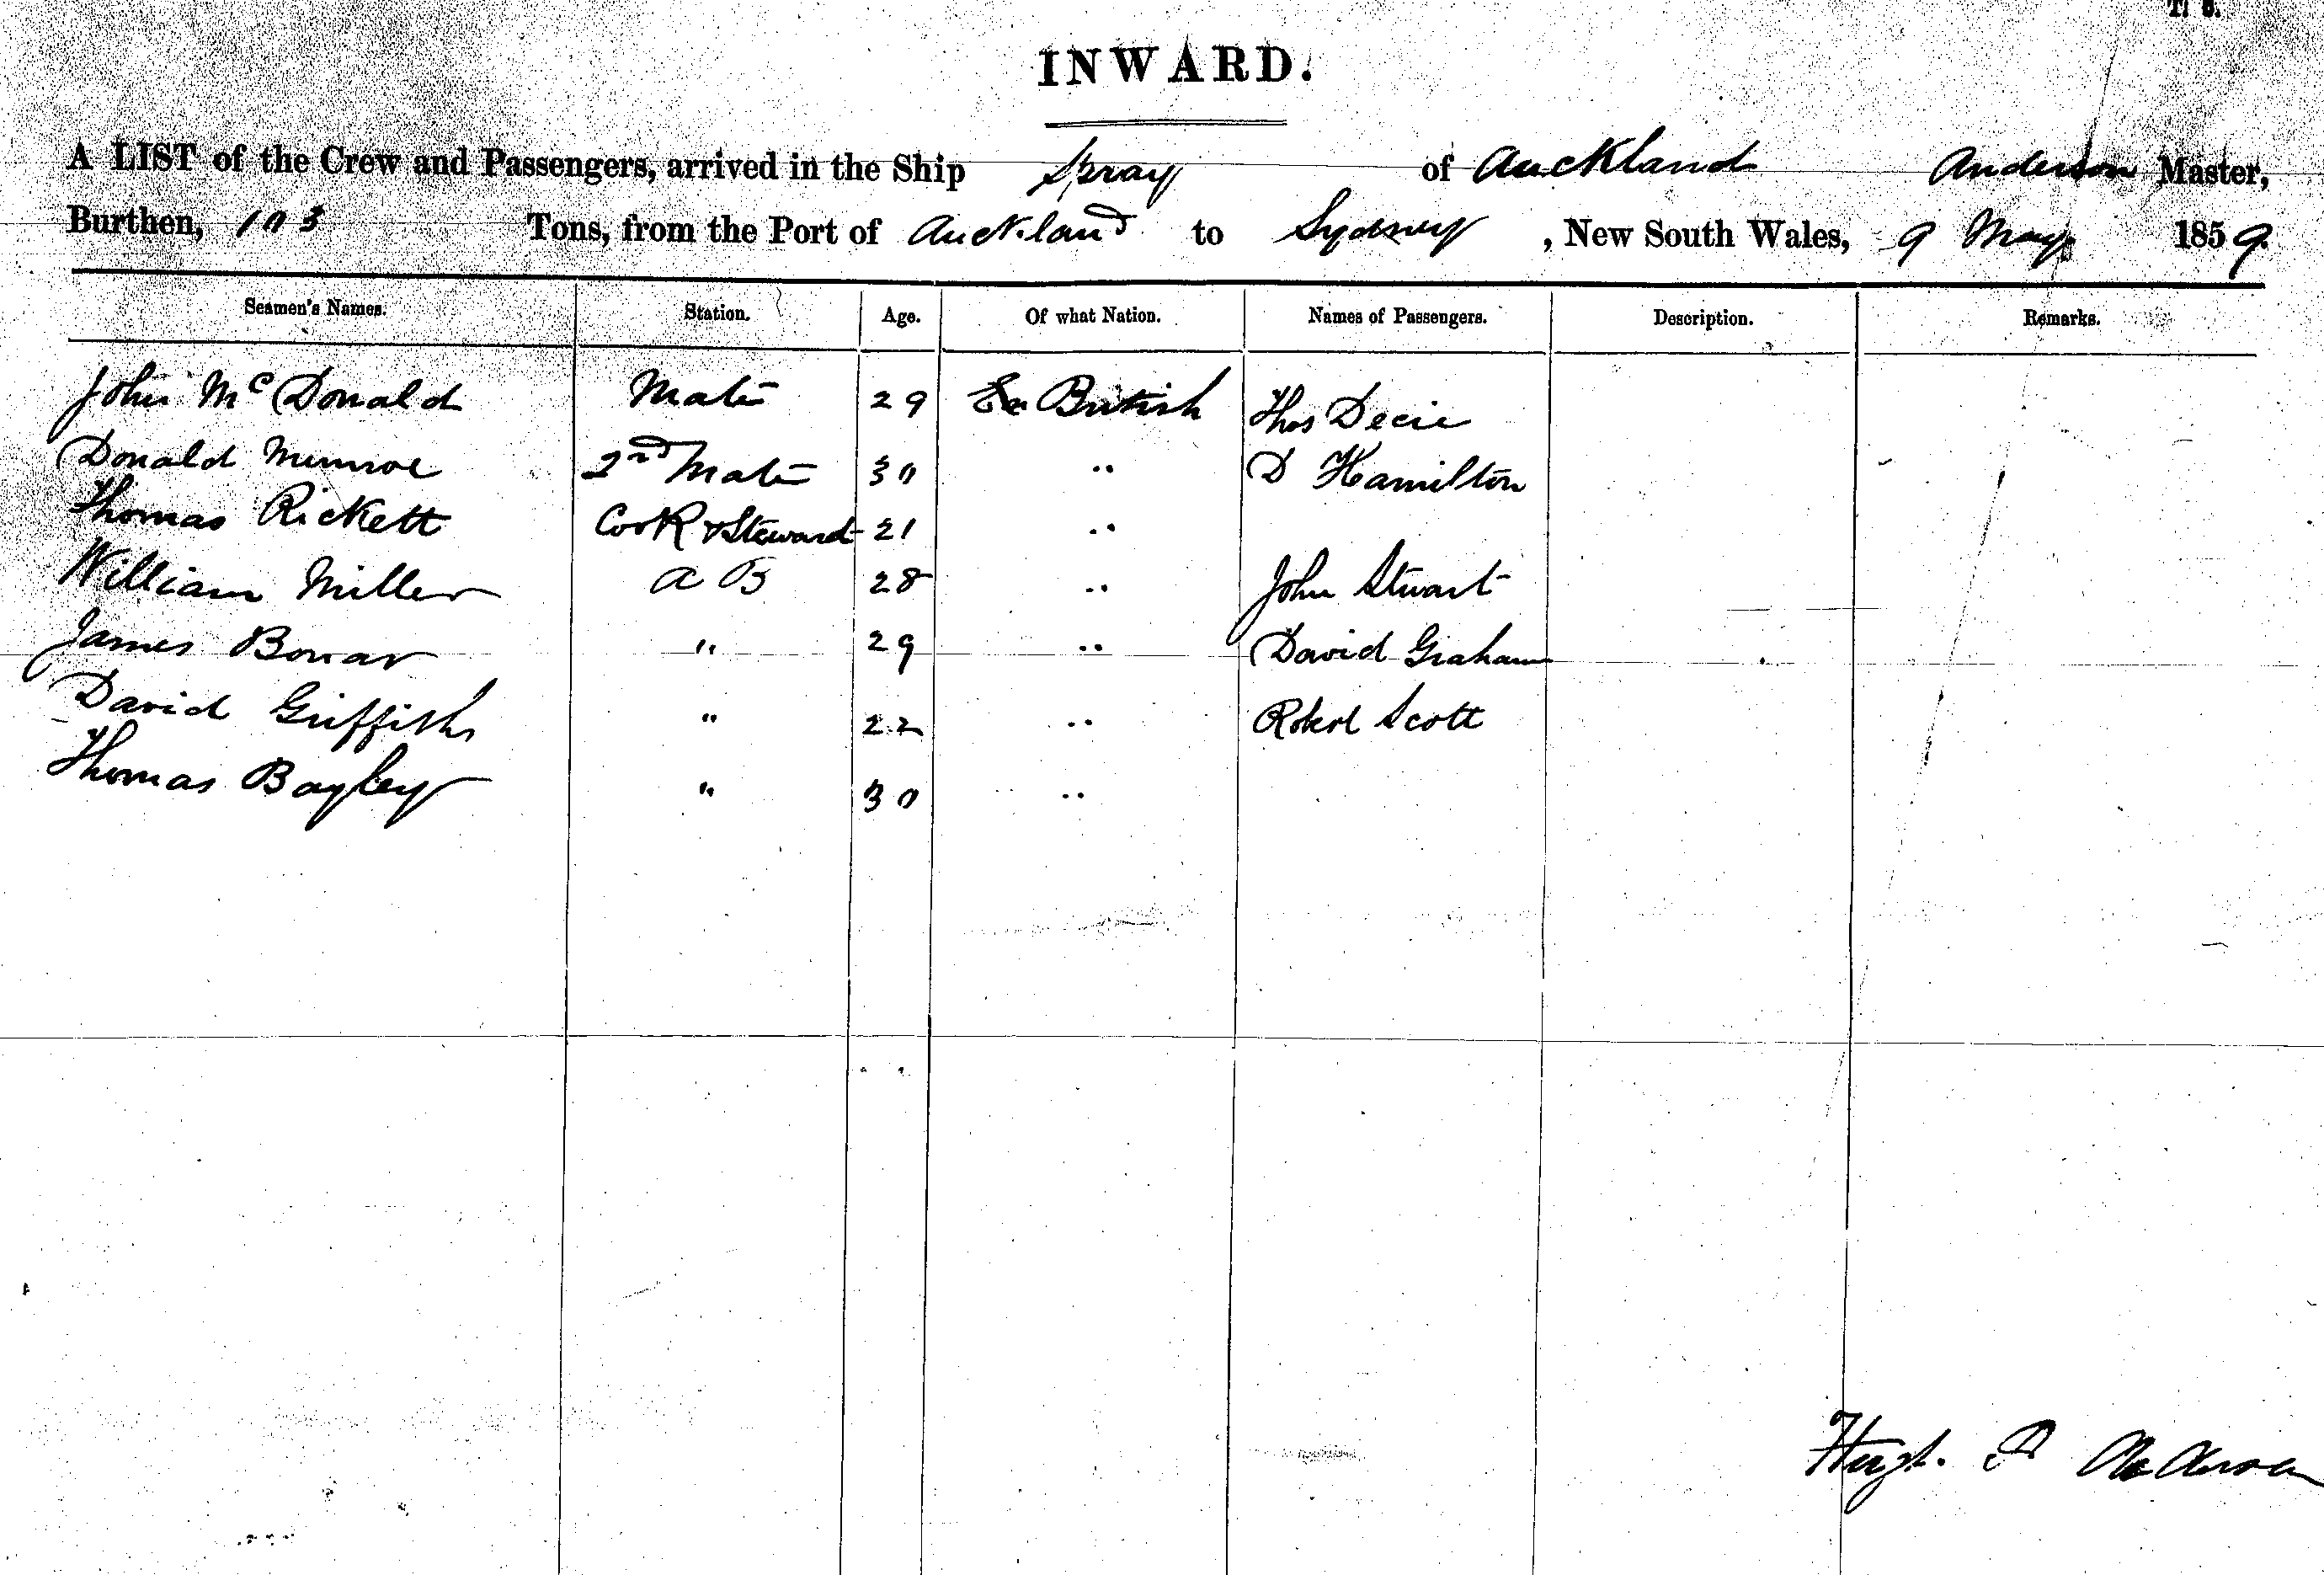 INWARD.
A LIST of the Crew and Passengers, arrived in the Ship Spray of Auckland Anderson Master,
Burthen, 103 Tons, from the Port of Auckland to Sydney, New South Wales, 9 May 1859.
Seamen's Names. Station. Age. Of what Nation. Names of Passengers. Description. Remarks.
John McDonald Mate 29 British Thos Decie
Donald Munroe 2nd Mate 30 " D Hamilton
Thomas Rickett Cook & Steward 21 "
William Miller A B 28 " John Stuart
James Bonar " 29 " David Graham
David Griffiths " 22 " Robert Scott
Thomas Bayley " 30 "
Hugh